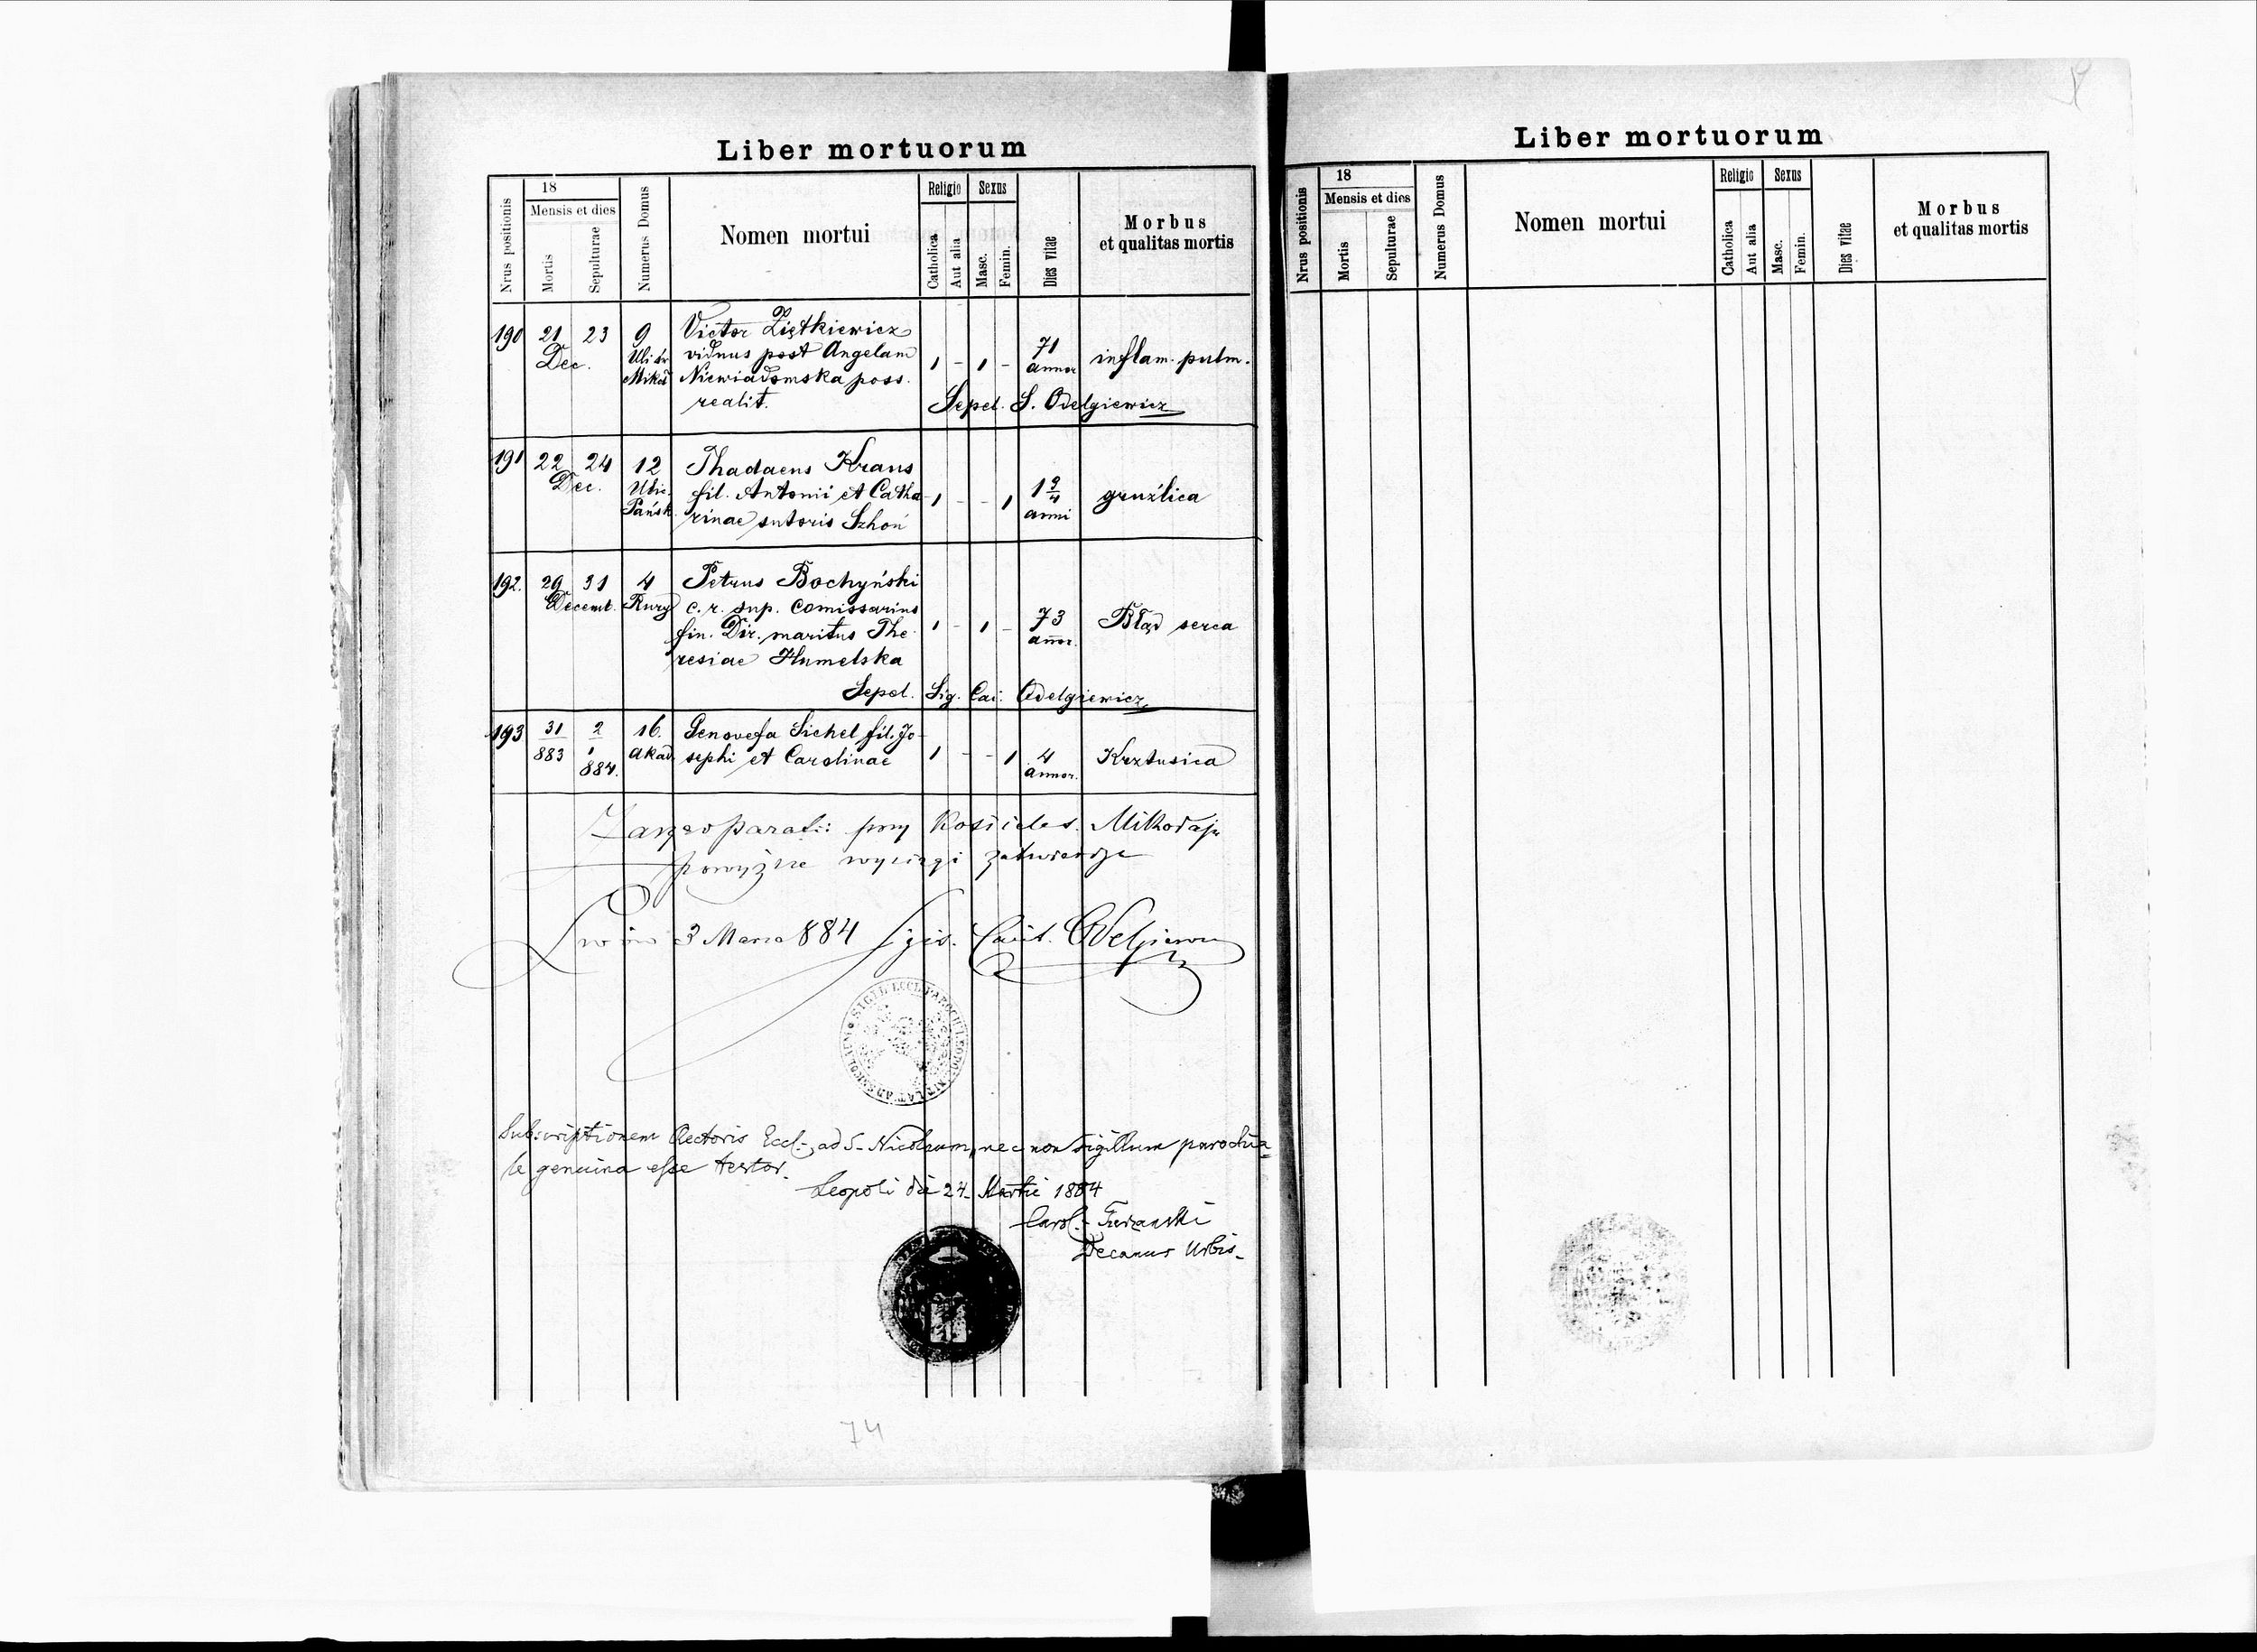 Liber mortuorum
Nrus positionis
18
Mensis et dies
Mortis
Sepulturae
Numerus Domus
Nomen mortui
Religio
Catholica
Aut alia
Sexus
Masc.
Femin.
Dies vitae
Morbus
et qualitas mortis
190 21 23 9 Victor Ziętkiewicz
Dec. Uli św viduus post Angelam 1 - 1 - 71 inflam. pulm.
Mikoł Niewiadomska poss. annor
realit. Sepel. S. Odelgiewicz
191 22 24 12 Thadaeus Kraus
Dec. Ulic. fil. Antonii et Catha- 1 - - 1 1 3/4 gruźlica
Pańsk. rinae sutoris Szhoń anni
192. 29 31 4 Petrus Bochyński
Decemb. Rury c. r. sup. Comissarius
fin. Dir. maritus The- 1 - 1 - 73 Błąd serca
resiae Humelska annor.
Sepel. Sig. Cai. Odelgiewicz
193 31 2 16. Genovefa Sichel fil. Jo-
883 1 akad. sephi et Carolinae 1 - - 1 4 Krztusica
884. annor.
Zarząd parafii przy Kościele s. Mikołaja
powyższe wyciągi zatwierdza
Lwów 3 Marca 884 Zgis. Cait. Odelgiewicz
SIGIL. ECCL. PAROCH. LEOPOL. RIT. LAT. AD S. NICOLAUM
Subscriptionem Rectoris Eccl. ad S. Nicolaum, nec non sigillum parochia-
le genuina esse testor.
Leopoli die 24. Martii 1884
Carol.
Decanus Urbis.
74
Liber mortuorum
Nrus positionis
18
Mensis et dies
Mortis
Sepulturae
Numerus Domus
Nomen mortui
Religio
Catholica
Aut alia
Sexus
Masc.
Femin.
Dies vitae
Morbus
et qualitas mortis